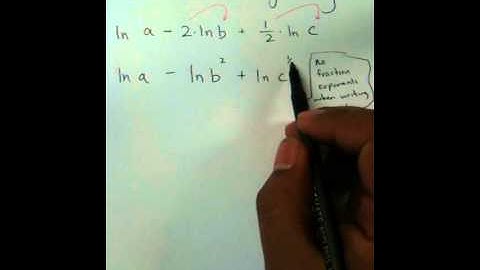 ln a - 2·ln b + 1/2·ln c
ln a - ln b² + ln c^½
No
fraction
exponents
when writing